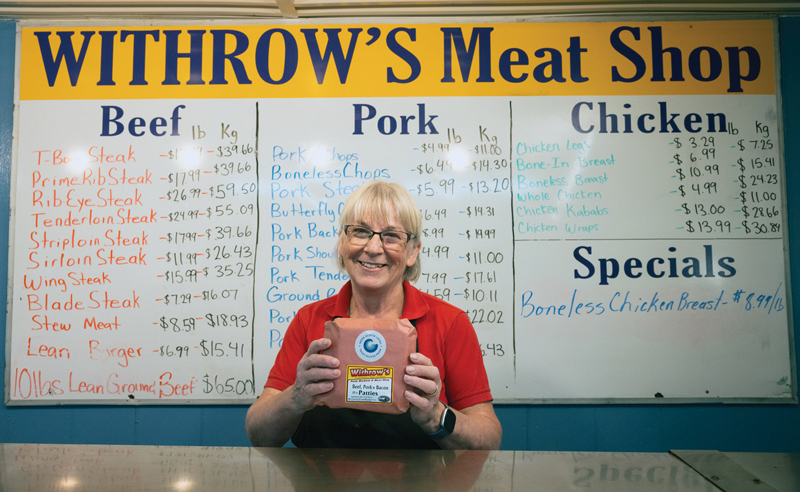 WITHROW'S Meat Shop
Beef
lb Kg
T-Bo Steak - $39.66
Prime Rib Steak - $17.99 - $39.66
Rib Eye Steak - $26.99 - $59.50
Tenderloin Steak - $24.99 - $55.09
Striploin Steak - $17.99 - $39.66
Sirloin Steak - $11.99 - $26.43
Wing Steak - $15.99 - $35.25
Blade Steak - $7.29 - $16.07
Stew Meat - $8.59 - $18.93
Lean Burger - $6.99 - $15.41
10 lbs Lean Ground Beef $65.00
Pork
lb Kg
Pork Chops - $4.99 - $11.00
Boneless Chops - $6.49 - $14.30
Pork Steak - $5.99 - $13.20
Butterfly 6.49 - $14.31
Pork Back 8.99 - $19.99
Pork Shou 4.99 - $11.00
Pork Tende 7.99 - $17.61
Ground 4.59 - $10.11
Pork $22.02
6.43
Chicken
lb Kg
Chicken Legs - $3.29 - $7.25
Bone-In Breast - $6.99 - $15.41
Boneless Breast - $10.99 - $24.23
Whole Chicken - $4.99 - $11.00
Chicken Kababs - $13.00 - $28.66
Chicken Wraps - $13.99 - $30.84
Specials
Boneless Chicken Breast - $8.99/lb
Withrow's
Beef, Pork & Bacon
Patties